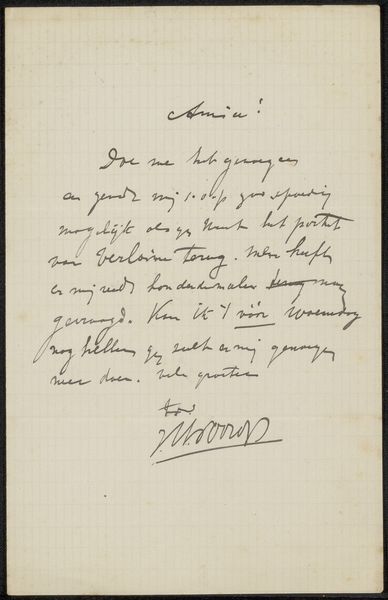 Amice!
Doe me het genoegen
en zendt mij s.o.p zoo spoedig
mogelijk als gij kunt het portret
van Verlaine terug. Men heeft
er mij reeds honderdmalen naar
gevraagd. Kan ik 't vóór woensdag
nog hebben gij zult er mij genoegen
mee doen. vele groeten